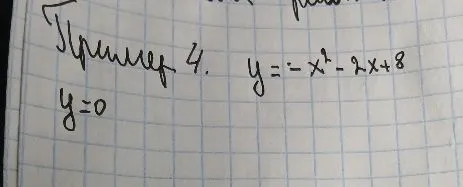 Пример 4. y = -x² - 2x + 8
y = 0